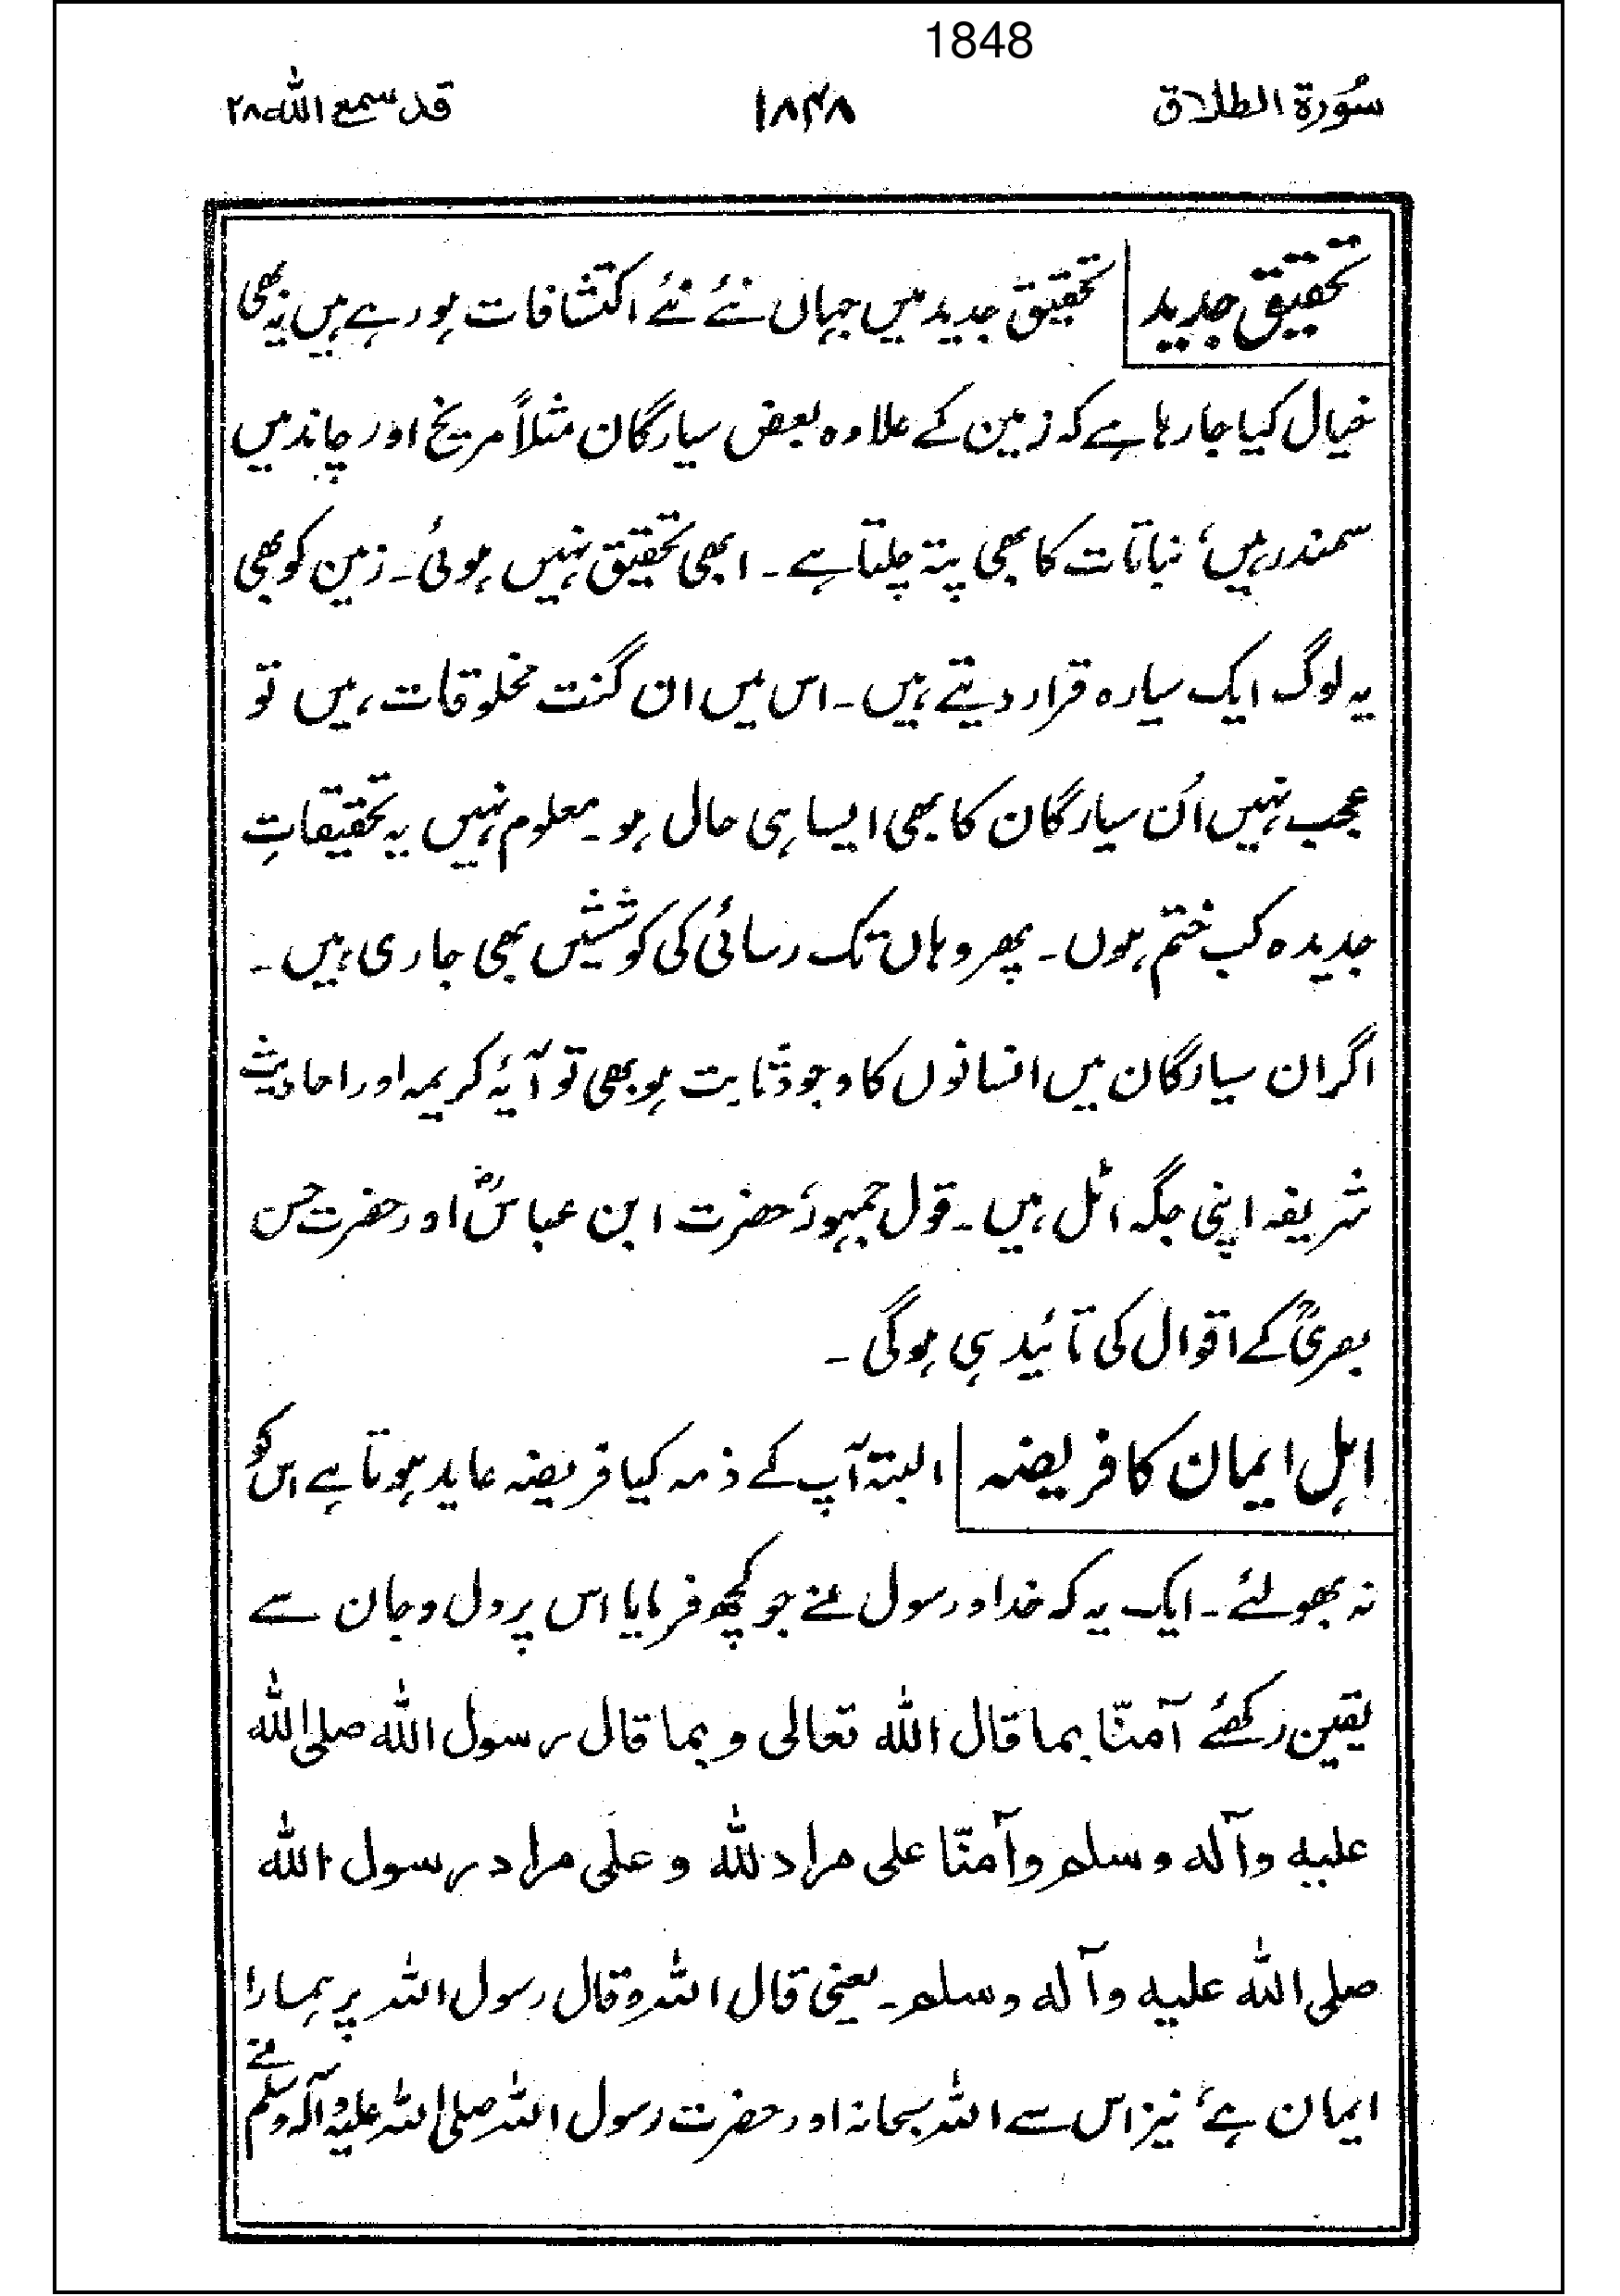 1848
سُورۃ الطلاق ۱۸۴۸ قد سمع اللہ ۲۸
تحقیق جدید تحقیق جدید میں جہاں نئے نئے اکتشافات ہورہے ہیں یہ بھی
خیال کیا جارہا ہے کہ زمین کے علاوہ بعض سیارگان مثلاً مریخ اور چاند میں
سمندر ہیں، نباتات کا بھی پتہ چلتا ہے۔ ابھی تحقیق نہیں ہوئی۔ زمین کو بھی
یہ لوگ ایک سیارہ قرار دیتے ہیں۔ اس میں ان گنت مخلوقات ہیں تو
عجب نہیں اُن سیارگان کا بھی ایسا ہی حال ہو۔ معلوم نہیں یہ تحقیقاتِ
جدیدہ کب ختم ہوں۔ پھر وہاں تک رسائی کی کوششیں بھی جاری ہیں۔
اگر ان سیارگان میں انسانوں کا وجود ثابت ہو بھی تو آیۂ کریمہ اور احادیث
شریفہ اپنی جگہ اٹل ہیں۔ قول جمہور، حضرت ابن عباسؓ اور حضرت حسن
بصریؒ کے اقوال کی تائید ہی ہوگی۔
اہل ایمان کا فریضہ البتہ آپ کے ذمہ کیا فریضہ عاید ہوتا ہے اس کو
نہ بھولئے۔ ایک یہ کہ خدا و رسول نے جو کچھ فرمایا اس پر دل و جان سے
یقین رکھئے آمنّا بما قال اللہ تعالی و بما قال رسول اللہ صلی اللہ
علیہ وآلہ وسلم وآمنّا علی مراد اللہ و علٰی مراد رسول اللہ
صلی اللہ علیہ وآلہ وسلم۔ یعنی قال اللہ وقال رسول اللہ پر ہمارا
ایمان ہے، نیز اس سے اللہ سبحانہ اور حضرت رسول اللہ صلی اللہ علیہ وآلہ وسلم نے